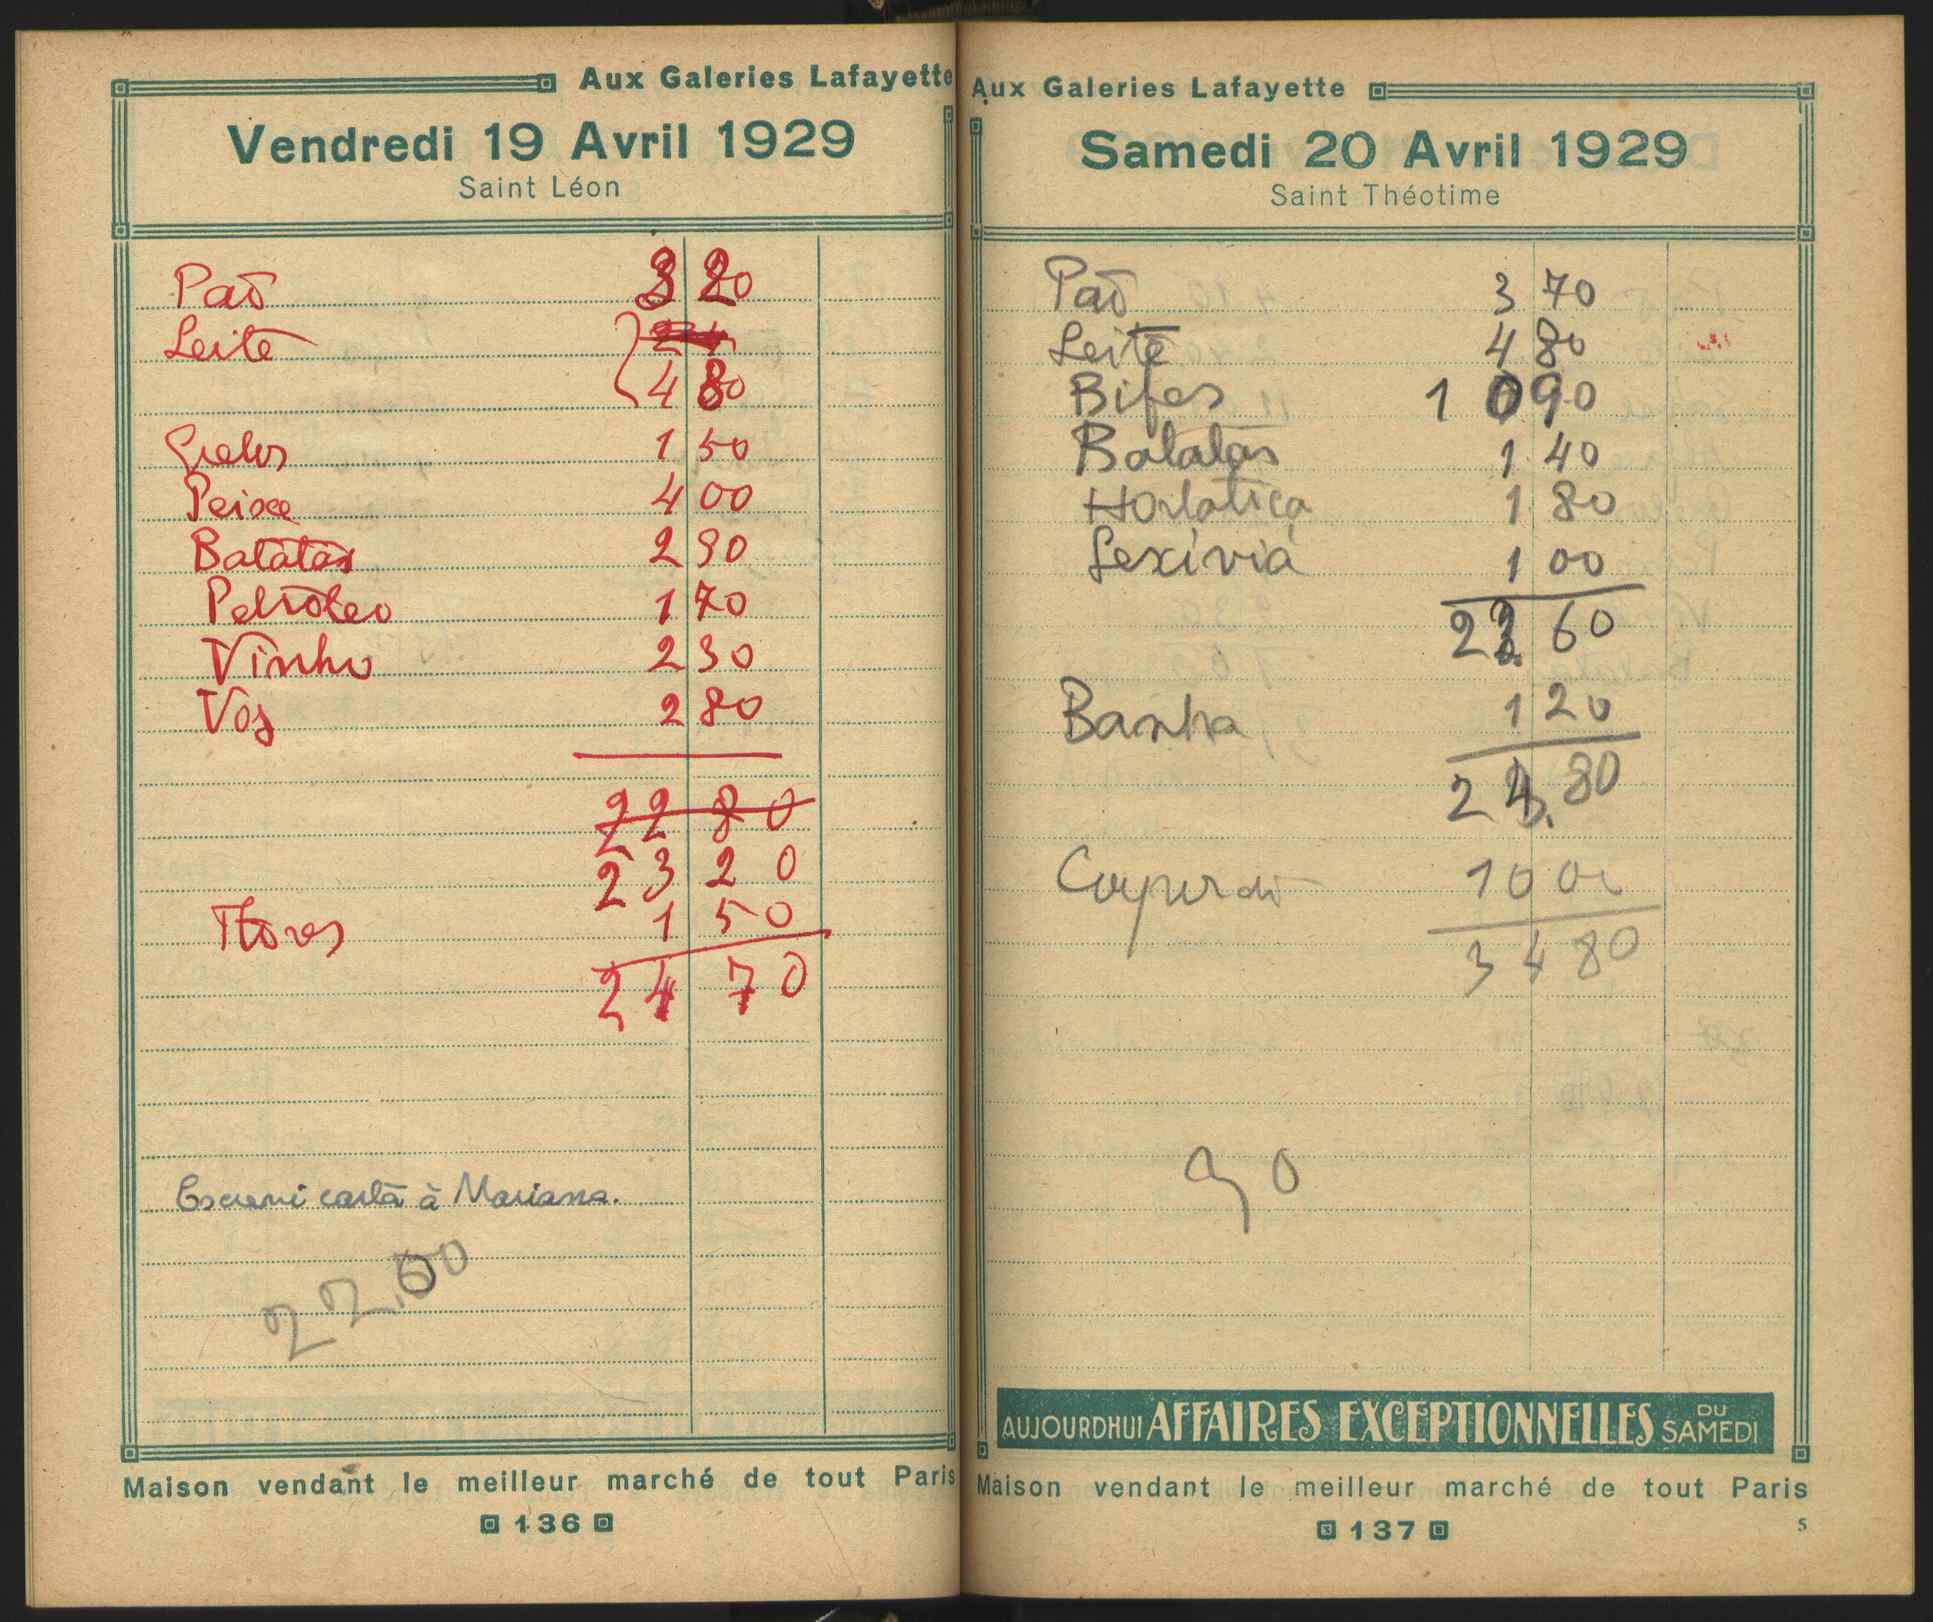 Aux Galeries Lafayette
Vendredi 19 Avril 1929
Saint Léon
Paõ 3 20
Leite
4 80
Grelos 1 50
Peixe 4 00
Batatas 2 90
Petroleo 1 70
Vinho 2 30
2 80
22 80
23 20
1 50
24 70
Escrevi carta à Mariana.
22.60
Maison vendant le meilleur marché de tout Paris
136
Aux Galeries Lafayette
Samedi 20 Avril 1929
Saint Théotime
Paõ 3 70
Leite 4 80
Bifes 10 90
Batatas 1 40
Hortaliça 1 80
Lexívia 1 00
22 60
Banha 1 20
24.80
10 00
34 80
90
AUJOURDHUI AFFAIRES EXCEPTIONNELLES DU SAMEDI
Maison vendant le meilleur marché de tout Paris
137
5